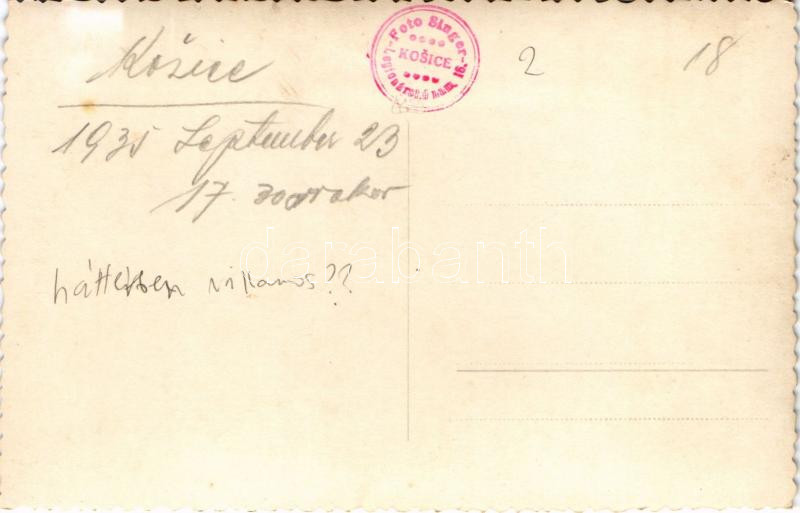 Košice
1935 September 23
17. 30
háttérben villamos??
Foto Singer
KOŠICE
Legionárské nám. 16.
2
18
darabanth